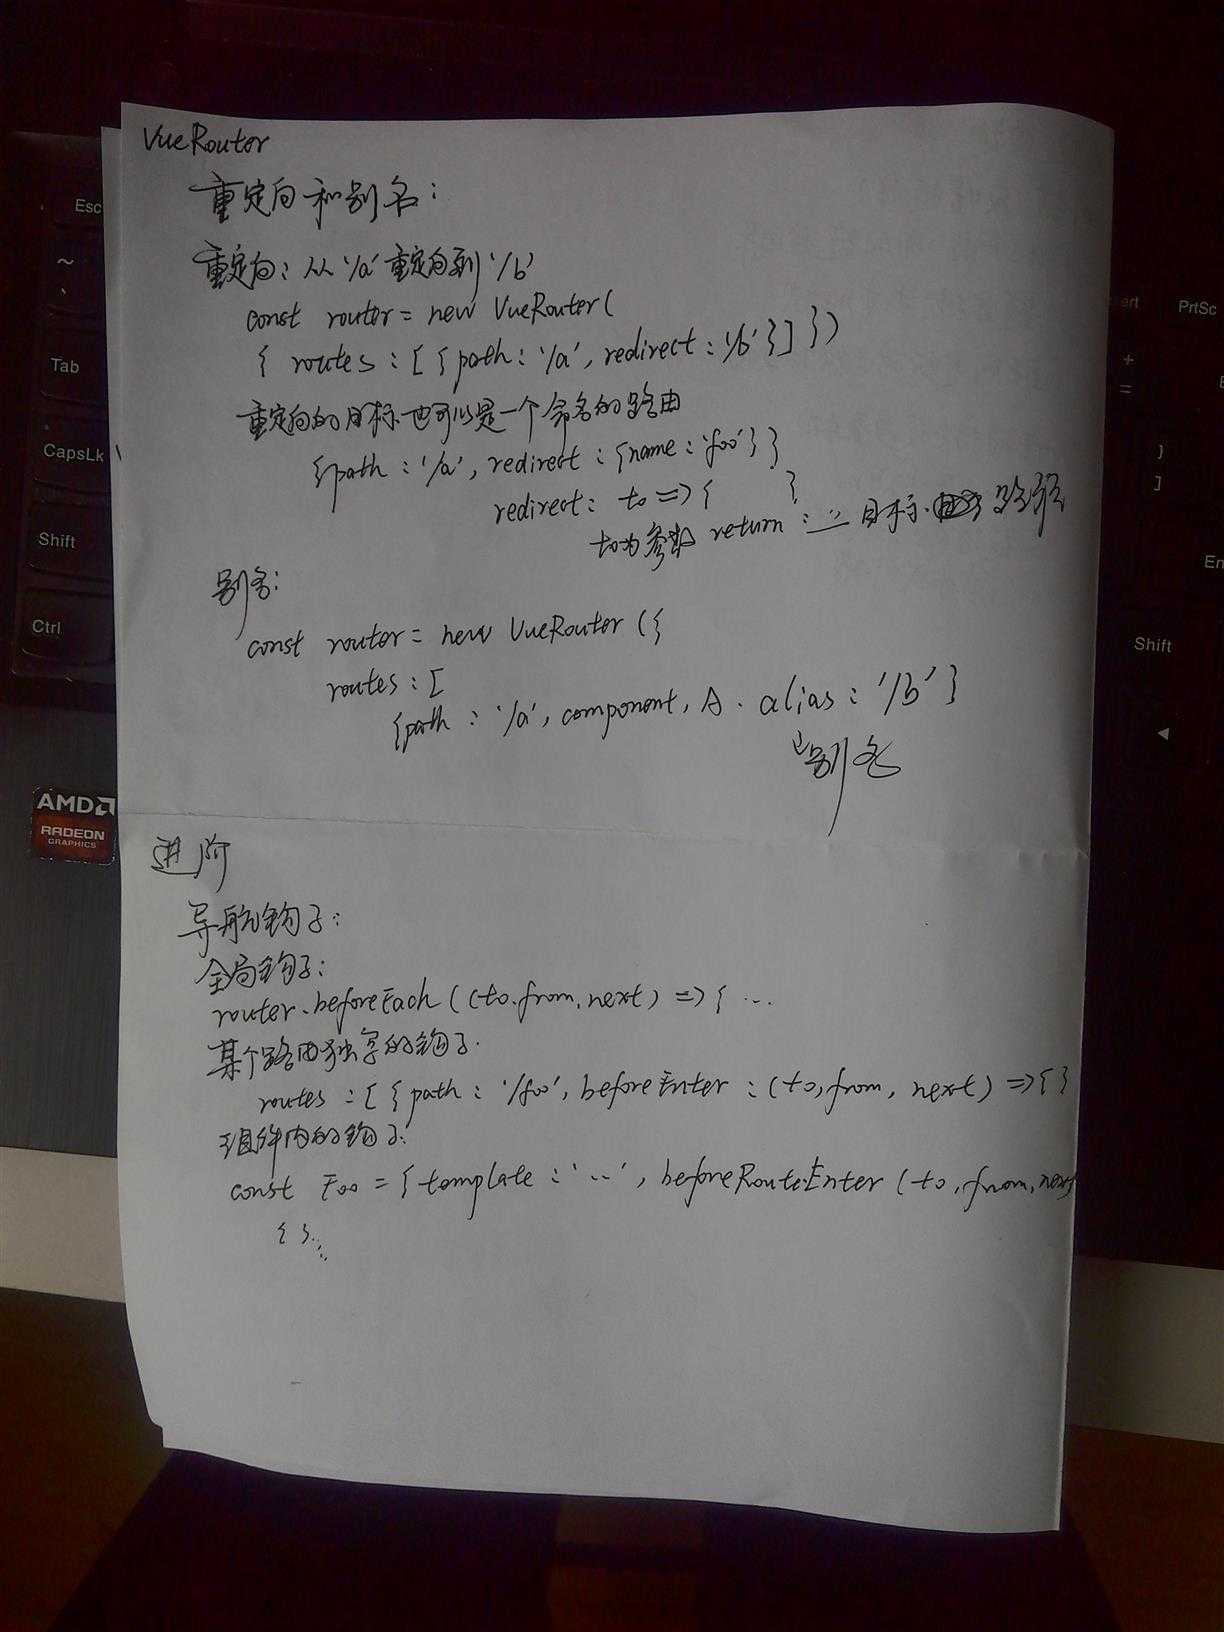 VueRouter
重定向和别名:
重定向: 从'/a'重定向到'/b'
const router = new VueRouter(
{ routes : [ { path : '/a', redirect : '/b' } ] })
重定向的目标也可以是一个命名的路由
{path : '/a', redirect : {name : 'foo'} }
redirect: to => { }
to为参数 return : 目标 路径
别名:
const router = new VueRouter ({
routes : [
{path : '/a', component, A. alias : '/b' }
别名
进阶
导航钩子:
全局钩子:
router.beforeEach ((to.from.next) => { ...
某个路由独享的钩子.
routes : [ { path : '/foo', beforeEnter : (to, from, next) => { }
组件内的钩子:
const Foo = { template : '...', beforeRouteEnter ( to, from, next
{ }...
Esc
~
Tab
CapsLk
Shift
Ctrl
AMD
RADEON
GRAPHICS
PrtSc
+
=
}
]
En
Shift